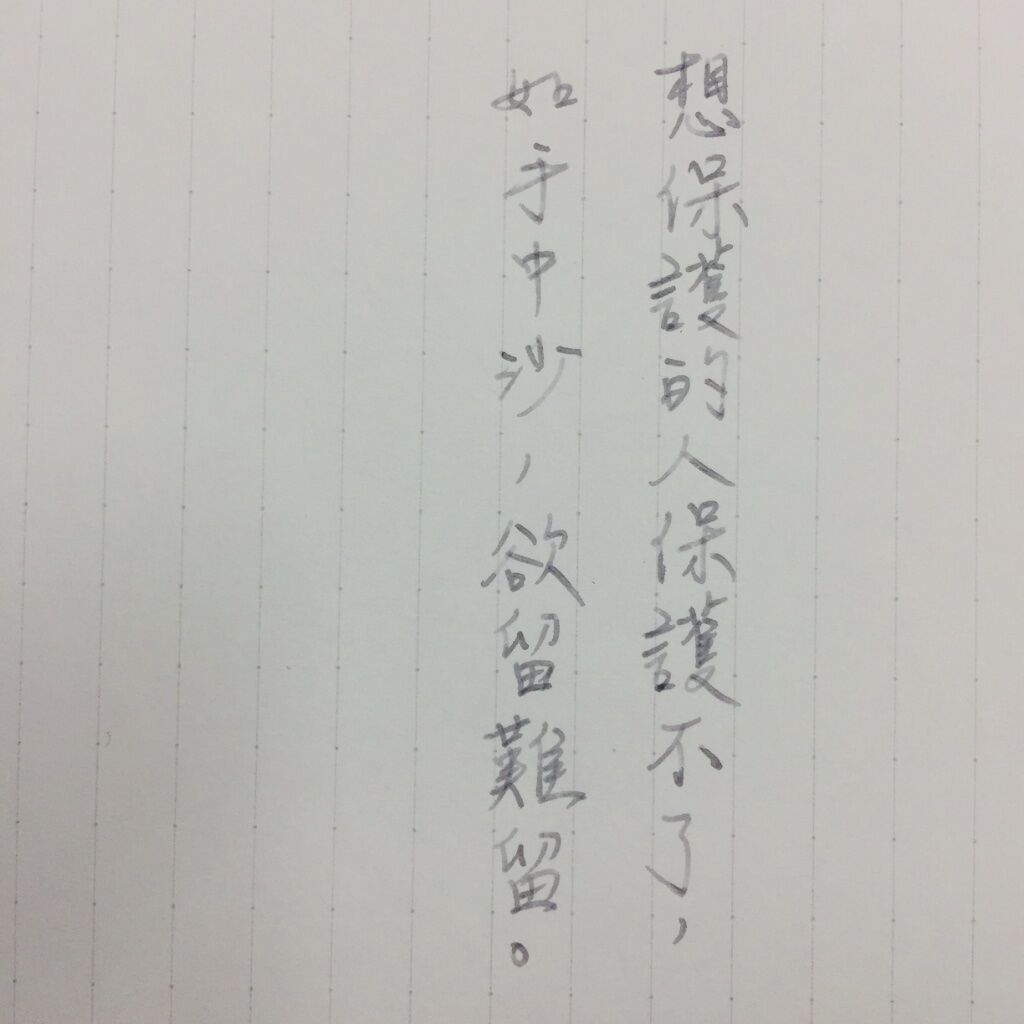 想保護的人保護不了，
如手中沙，欲留難留。